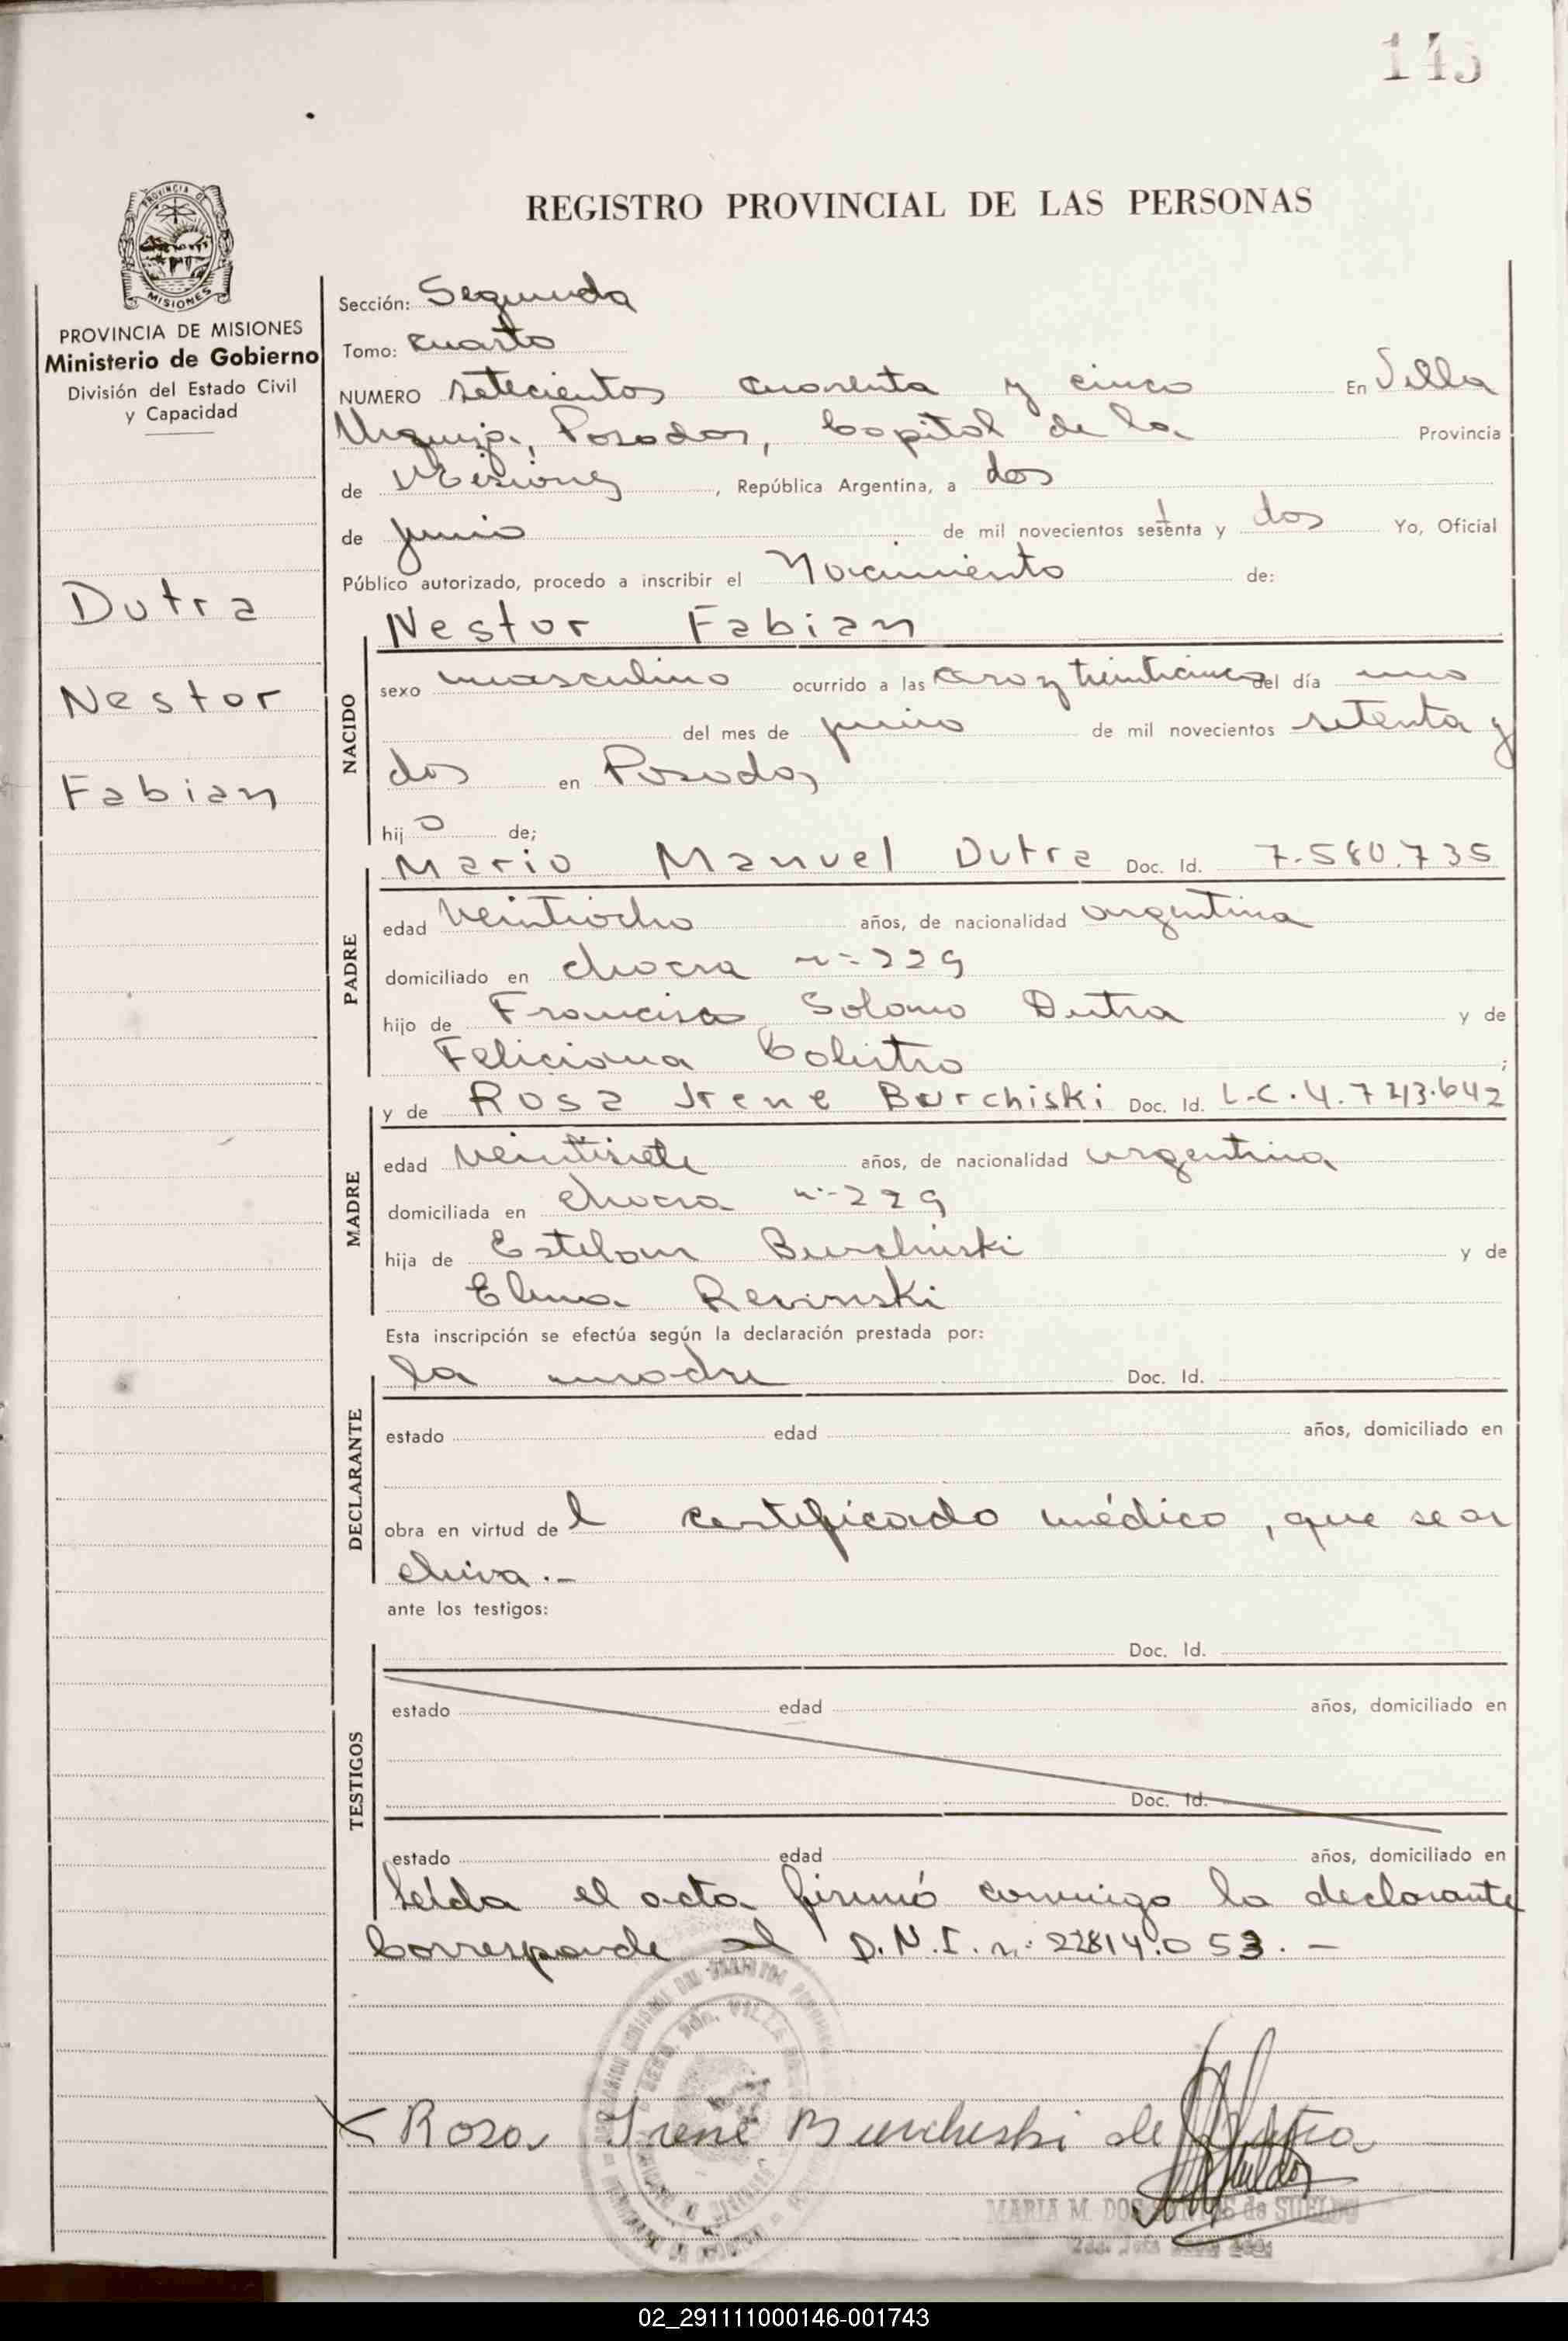 145
REGISTRO PROVINCIAL DE LAS PERSONAS
PROVINCIA DE MISIONES
PROVINCIA DE MISIONES
Ministerio de Gobierno
División del Estado Civil
y Capacidad
Dutra
Nestor
Fabian
Sección: Segunda
Tomo: Cuarto
NUMERO setecientos cuarenta y cinco En Villa
Urquiza, Posadas, Capital de la Provincia
de Misiones, República Argentina, a dos
de junio de mil novecientos setenta y dos Yo, Oficial
Público autorizado, procedo a inscribir el Nacimiento de:
Nestor Fabian
NACIDO
sexo masculino ocurrido a las cero y treinticinco del día uno
del mes de junio de mil novecientos setenta y
dos en Posadas
hijo de;
Mario Manuel Dutra Doc. Id. 7.580.735
PADRE
edad veintiocho años, de nacionalidad argentina
domiciliado en chacra nº 229
hijo de Francisco Solano Dutra y de
Feliciana ;
y de Rosa Irene Burchiski Doc. Id. L.C. 4.743.642
MADRE
edad veintisiete años, de nacionalidad argentina
domiciliada en chacra nº 229
hija de Esteban Burchiski y de
Elena
Esta inscripción se efectúa según la declaración prestada por:
la madre Doc. Id.
DECLARANTE
estado edad años, domiciliado en
obra en virtud del certificado médico, que se ar
chiva.-
ante los testigos:
Doc. Id.
TESTIGOS
estado edad años, domiciliado en
Doc. Id.
estado edad años, domiciliado en
Leída el acta firmó conmigo la declarante
Corresponde al D.N.I. nº 22814.053.-
Rosa Irene Burcheski de Dutra
MARIA M. DOS de SUELDO
02_291111000146-001743